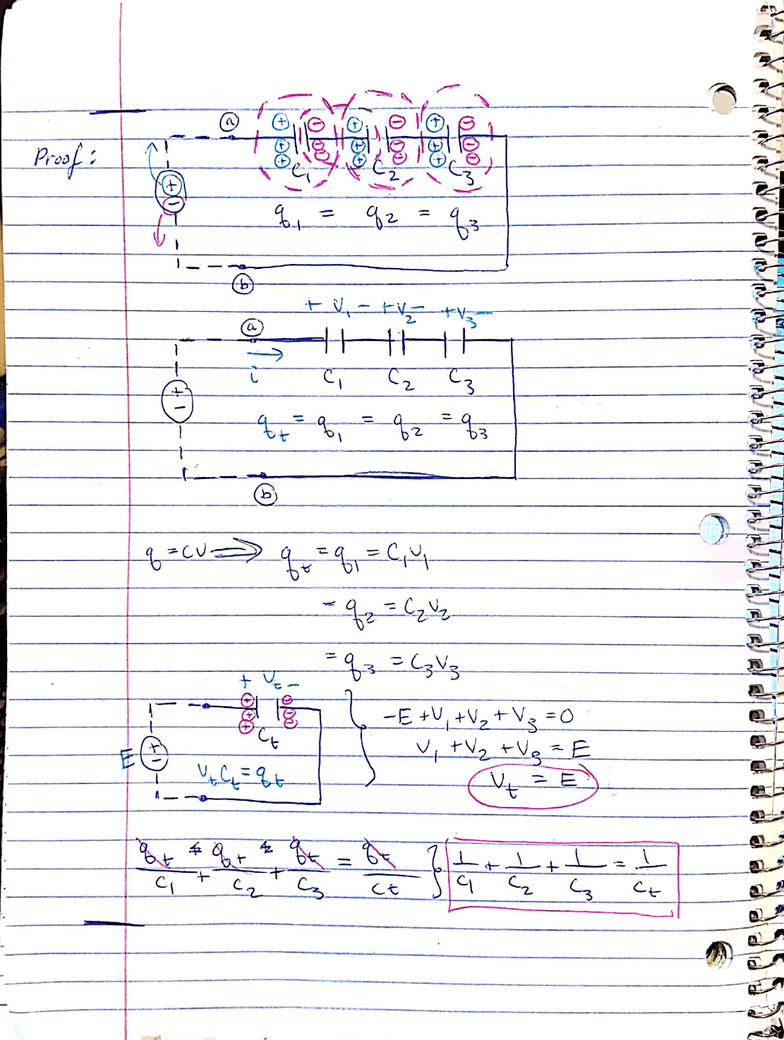 ⓐ ⊕ ⊖ ⊕ ⊖ ⊕ ⊖
Proof: ⊕ ⊖ ⊕ ⊖ ⊕ ⊖
⊕ ⊖ ⊕ ⊖ ⊕ ⊖
C₁ C₂ C₃
⊕
⊖
q₁ = q₂ = q₃
ⓑ
+ V₁ - + V₂ - + V₃ -
ⓐ
i C₁ C₂ C₃
+
-
qₜ = q₁ = q₂ = q₃
ⓑ
q = CV ⟹ qₜ = q₁ = C₁V₁
- q₂ = C₂V₂
= q₃ = C₃V₃
+ Vₜ -
⊕ ⊖
⊕ ⊖
⊕ ⊖
Cₜ
E + -
VₜCₜ = qₜ
-E + V₁ + V₂ + V₃ = 0
V₁ + V₂ + V₃ = E
Vₜ = E
qₜ/C₁ + qₜ/C₂ + qₜ/C₃ = qₜ/Cₜ } 1/C₁ + 1/C₂ + 1/C₃ = 1/Cₜ